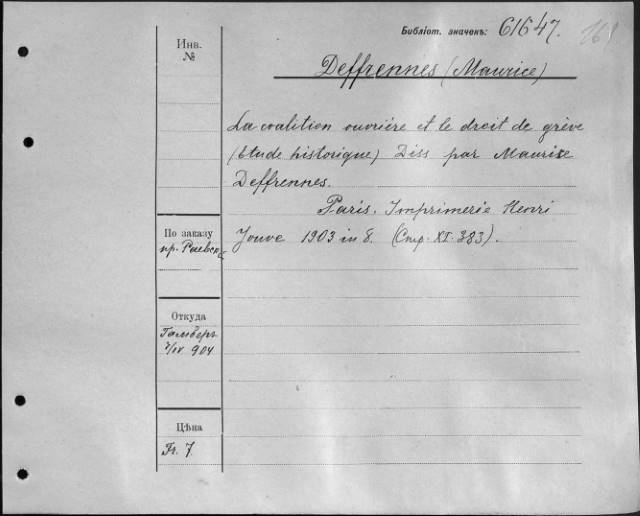 Библіот. значекъ: 61647.
Инв.
№
Deffrennes (Maurice)
La coalition ouvrière et le droit de grève
(Étude historique) Diss par Maurice
Deffrennes.
Paris. Imprimerie Henri
Jouve 1903 in 8. (Стр. XI-383).
По заказу
пр. Раевск
Откуда
904
Цѣна
Fr. 7.